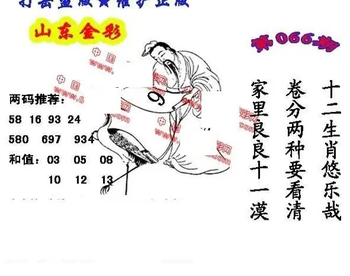 打击盗版责维护正版
山东金彩
第066期
两码推荐：
58 16 93 24
580 697 934
和值： 03 05 08
10 12 13
9
十二生肖悠乐哉
卷分两种要看清
家里良良十一漠